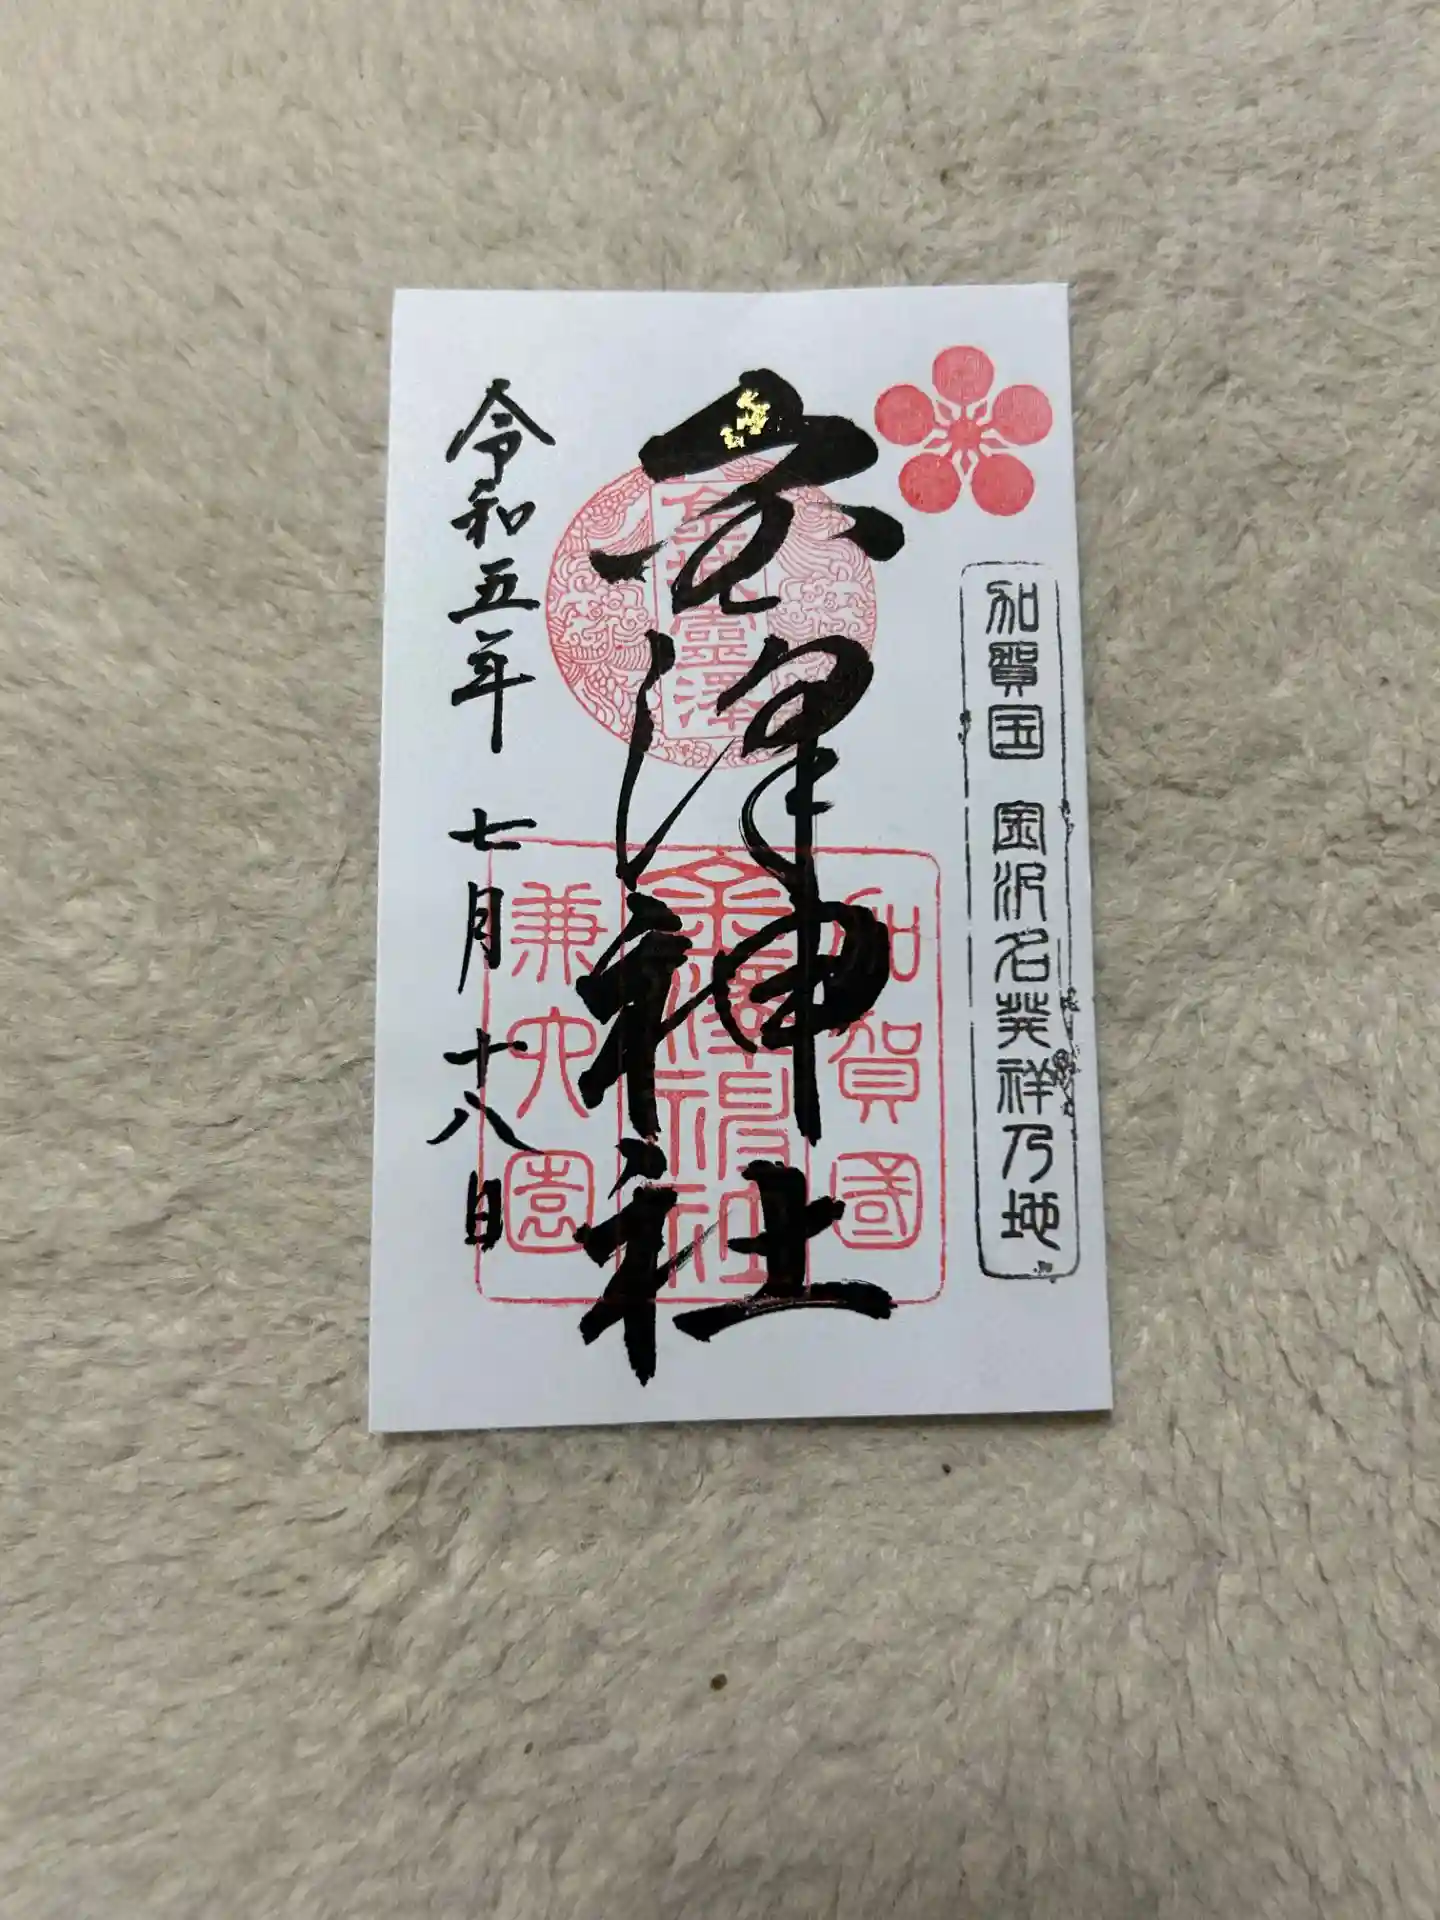 加賀国 金沢名発祥乃地
金澤神社
金城靈澤
加賀國
金澤神社
兼六園
令和五年 七月 十八日